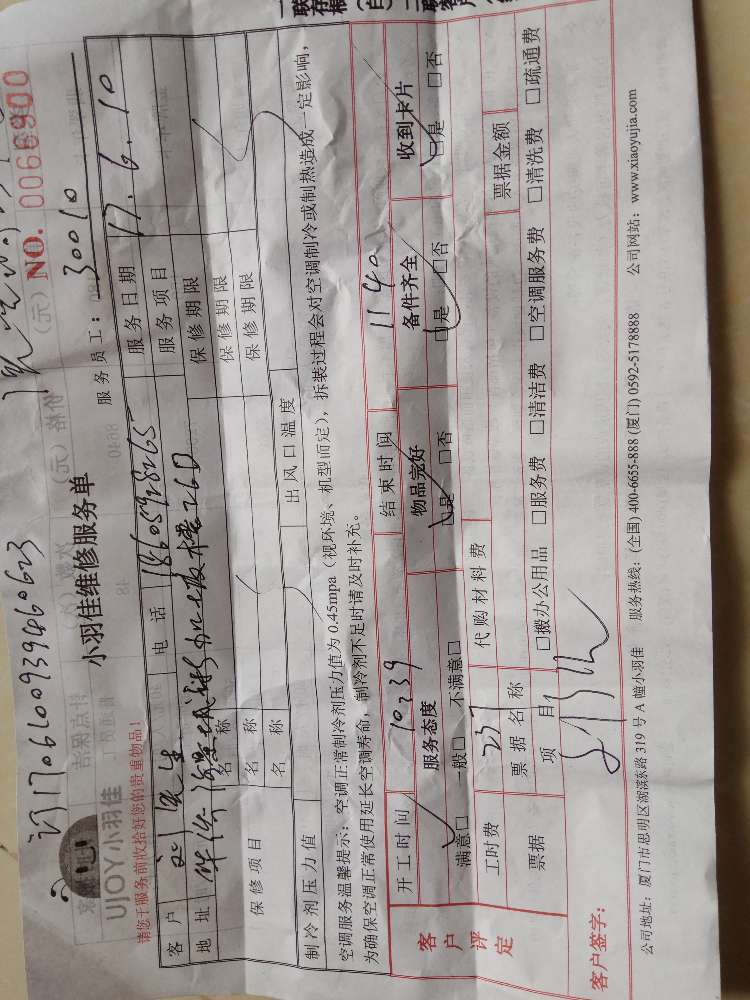 订17061009394860623
UJOY小羽佳
小羽佳维修服务单
NO. 0068900
请您于服务前收拾好您的贵重物品!
服务员工: 30010
客户 刘先生 电话 18605928265 服务日期 17.6.10
地址 26D 服务项目
保修项目 名称 保修期限
名称 保修期限
名称 保修期限
制冷剂压力值 出风口温度
空调服务温馨提示: 空调正常制冷剂压力值为 0.45mpa (视环境、机型而定), 拆装过程会对空调制冷或制热造成一定影响,
为确保空调正常使用延长空调寿命, 制冷剂不足时请及时补充。
客户评定
开工时间 10:39 结束时间 1140
服务态度 物品完好 备件齐全 收到卡片
满意□ 一般□ 不满意□ □是 □否 □是 □否 □是 □否
工时费 237 代购材料费
票据 票据名称 票据金额
项目 □搬办公用品 □服务费 □清洁费 □空调服务费 □清洗费 □疏通费
客户签字:
公司地址: 厦门市思明区湖滨东路 319 号 A 幢小羽佳 服务热线: (全国) 400-6655-888 (厦门) 0592-5178888 公司网站: www.xiaoyujia.com